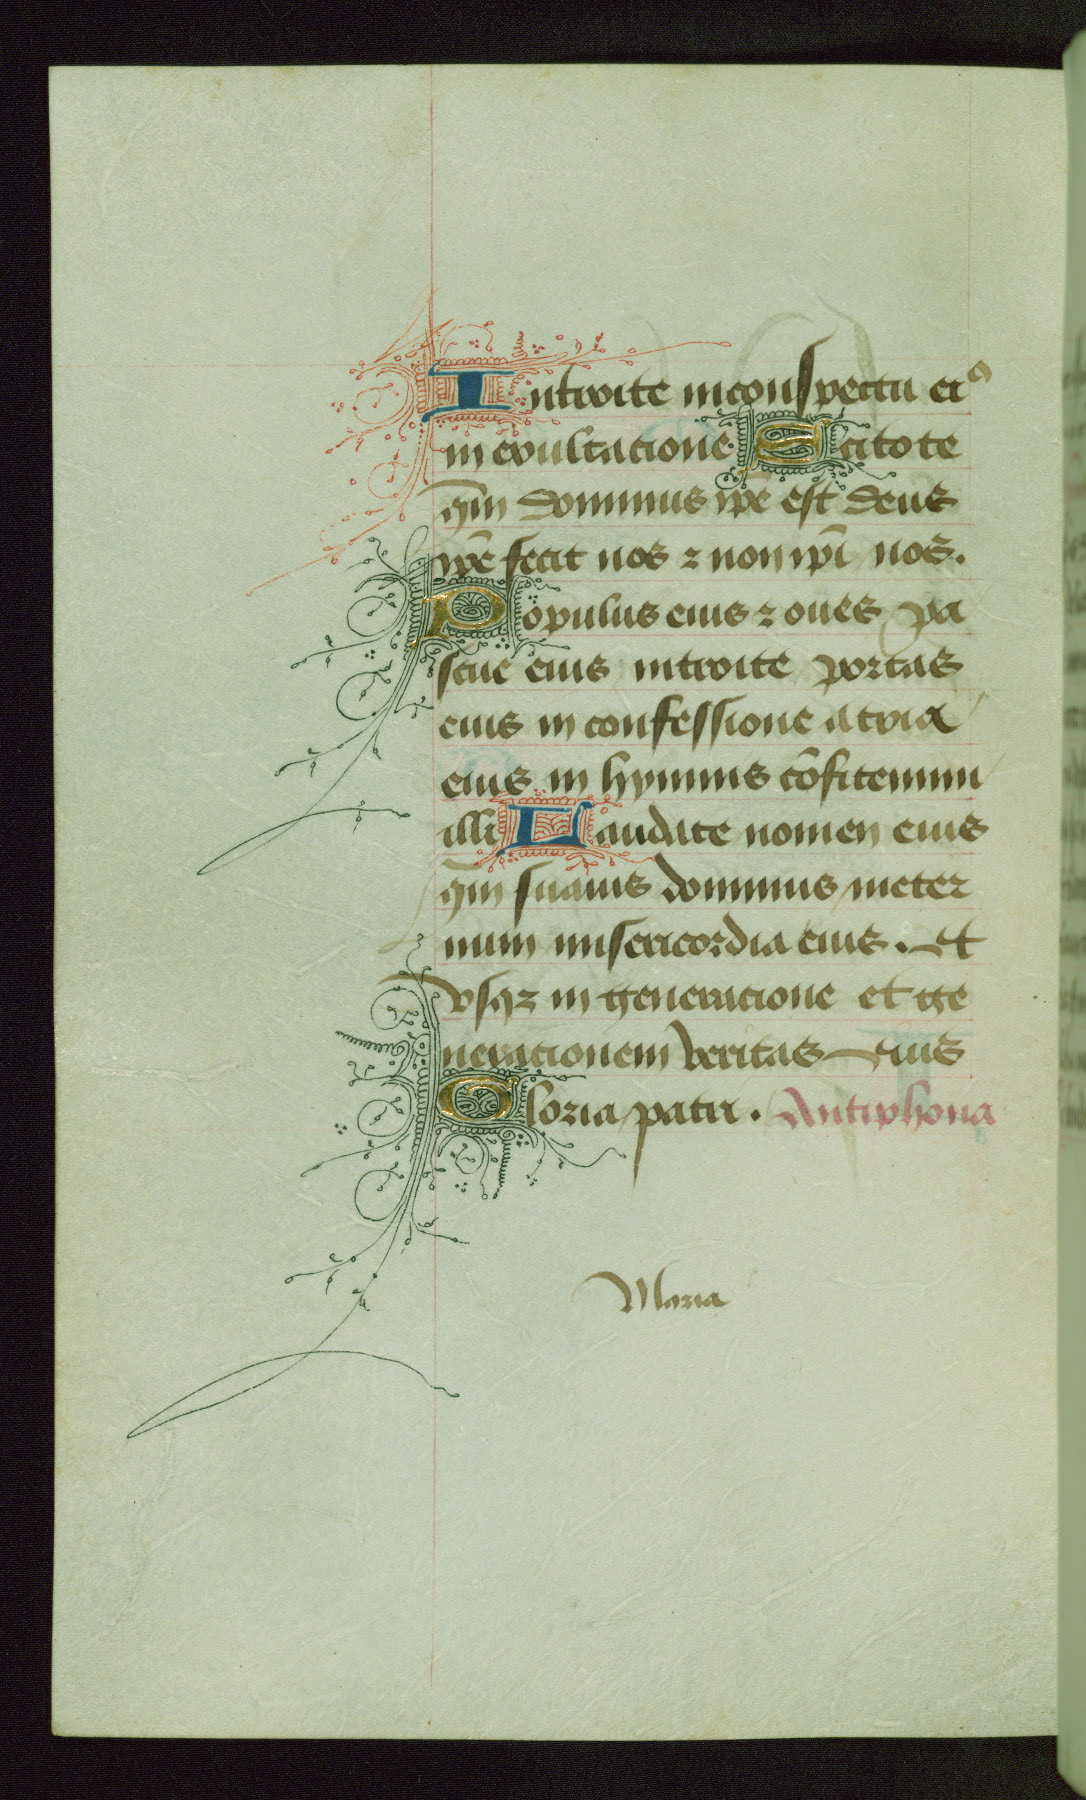 Introite in conspectu eiꝰ
in exultacione Scitote
qm̄ dominus ip̄e est deus
ip̄e fecit nos ⁊ non ip̄i nos.
Populus eius ⁊ oues pa
scue eius introite portas
eius in confessione atria
eius in hymnis cōfitemini
illi Laudate nomen eius
qm̄ suauis dominus in eter
num misericordia eius. Et
vsqꝫ in generacione et ge
neracionem veritas eius
Gloria patri. Antiphona
Maria